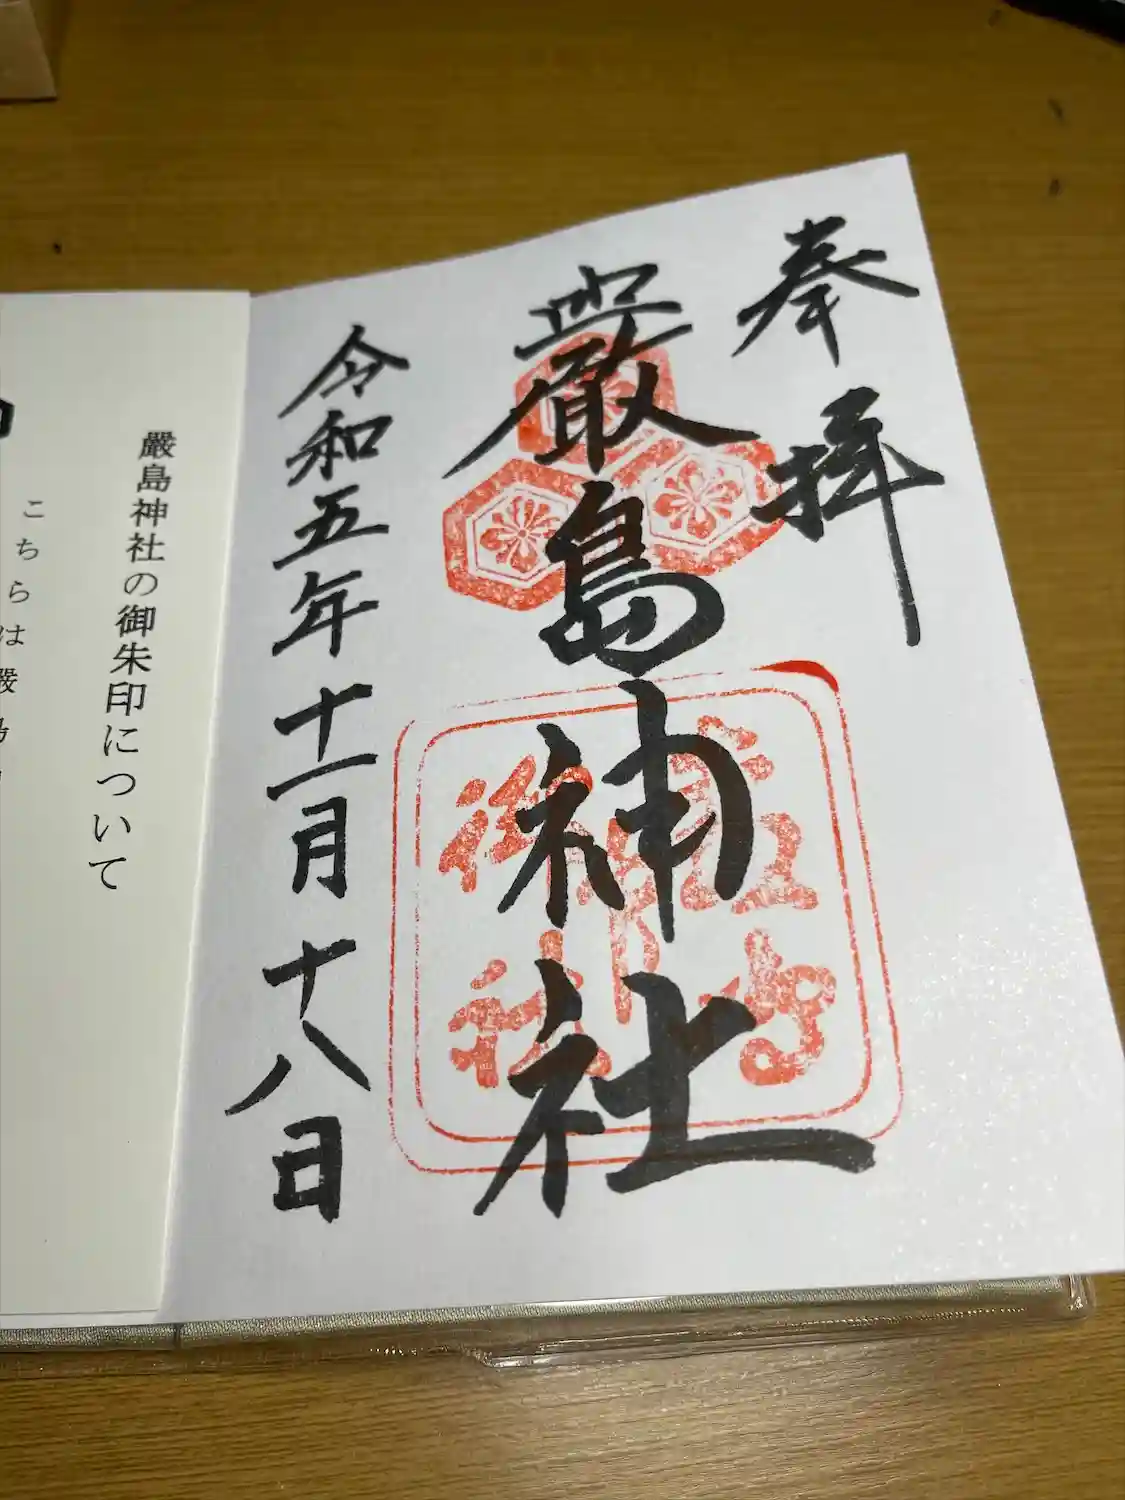 奉拝
嚴島神社
令和五年十一月十八日
嚴島神社の御朱印について
こちらは嚴島